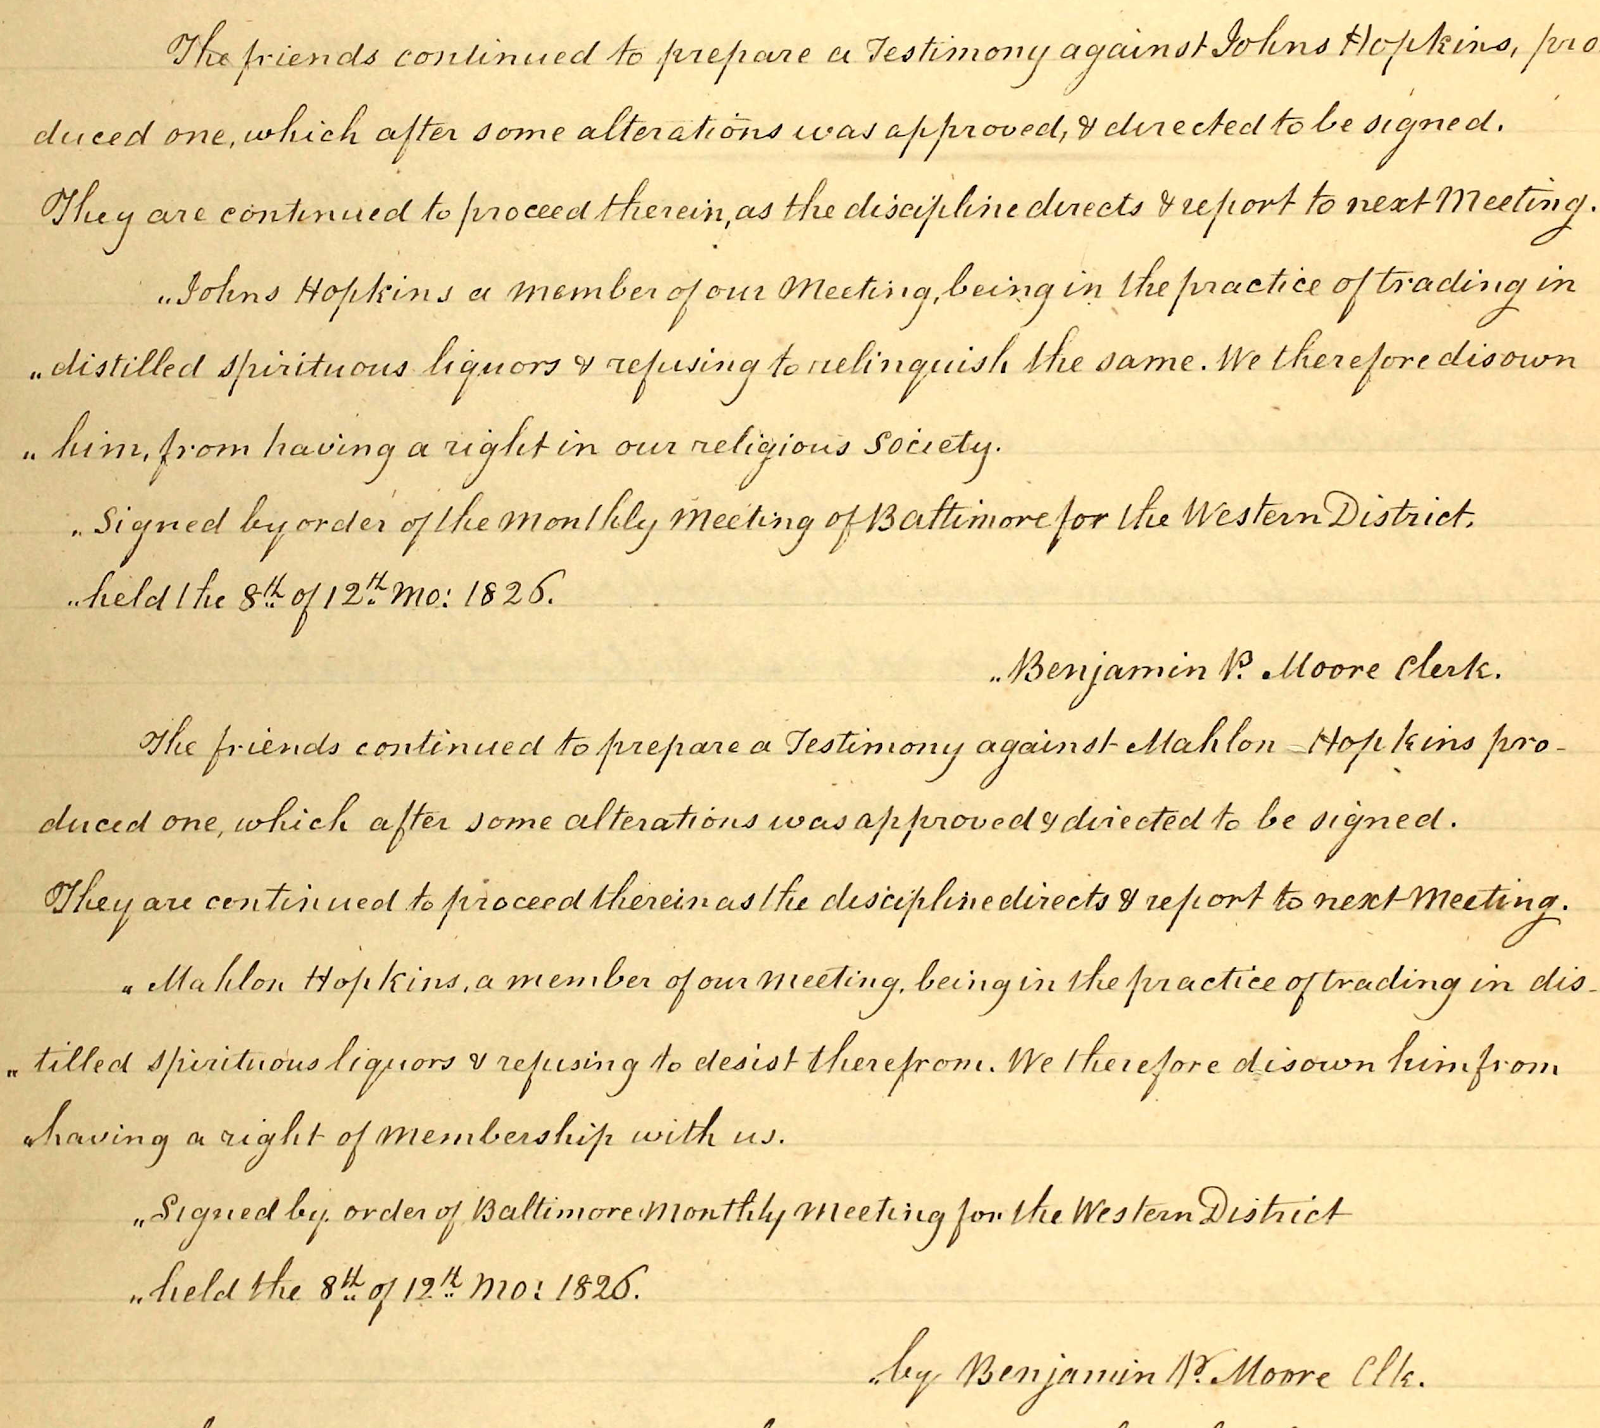 The friends continued to prepare a Testimony against Johns Hopkins, pro
duced one, which after some alterations was approved, & directed to be signed.
They are continued to proceed therein, as the discipline directs & report to next Meeting.
„Johns Hopkins a member of our Meeting, being in the practice of trading in
„distilled spirituous liquors & refusing to relinquish the same. We therefore disown
„him, from having a right in our religious Society.
„Signed by order of the Monthly Meeting of Baltimore for the Western District.
„held the 8th of 12th Mo: 1826.
„Benjamin P. Moore Clerk.
The friends continued to prepare a Testimony against Mahlon Hopkins pro-
duced one, which after some alterations was approved & directed to be signed.
They are continued to proceed therein as the discipline directs & report to next Meeting.
„Mahlon Hopkins, a member of our Meeting, being in the practice of trading in dis-
„tilled spirituous liquors & refusing to desist therefrom. We therefore disown him from
„having a right of membership with us.
„Signed by order of Baltimore Monthly Meeting for the Western District
„held the 8th of 12th Mo: 1826.
„by Benjamin P. Moore Clk.